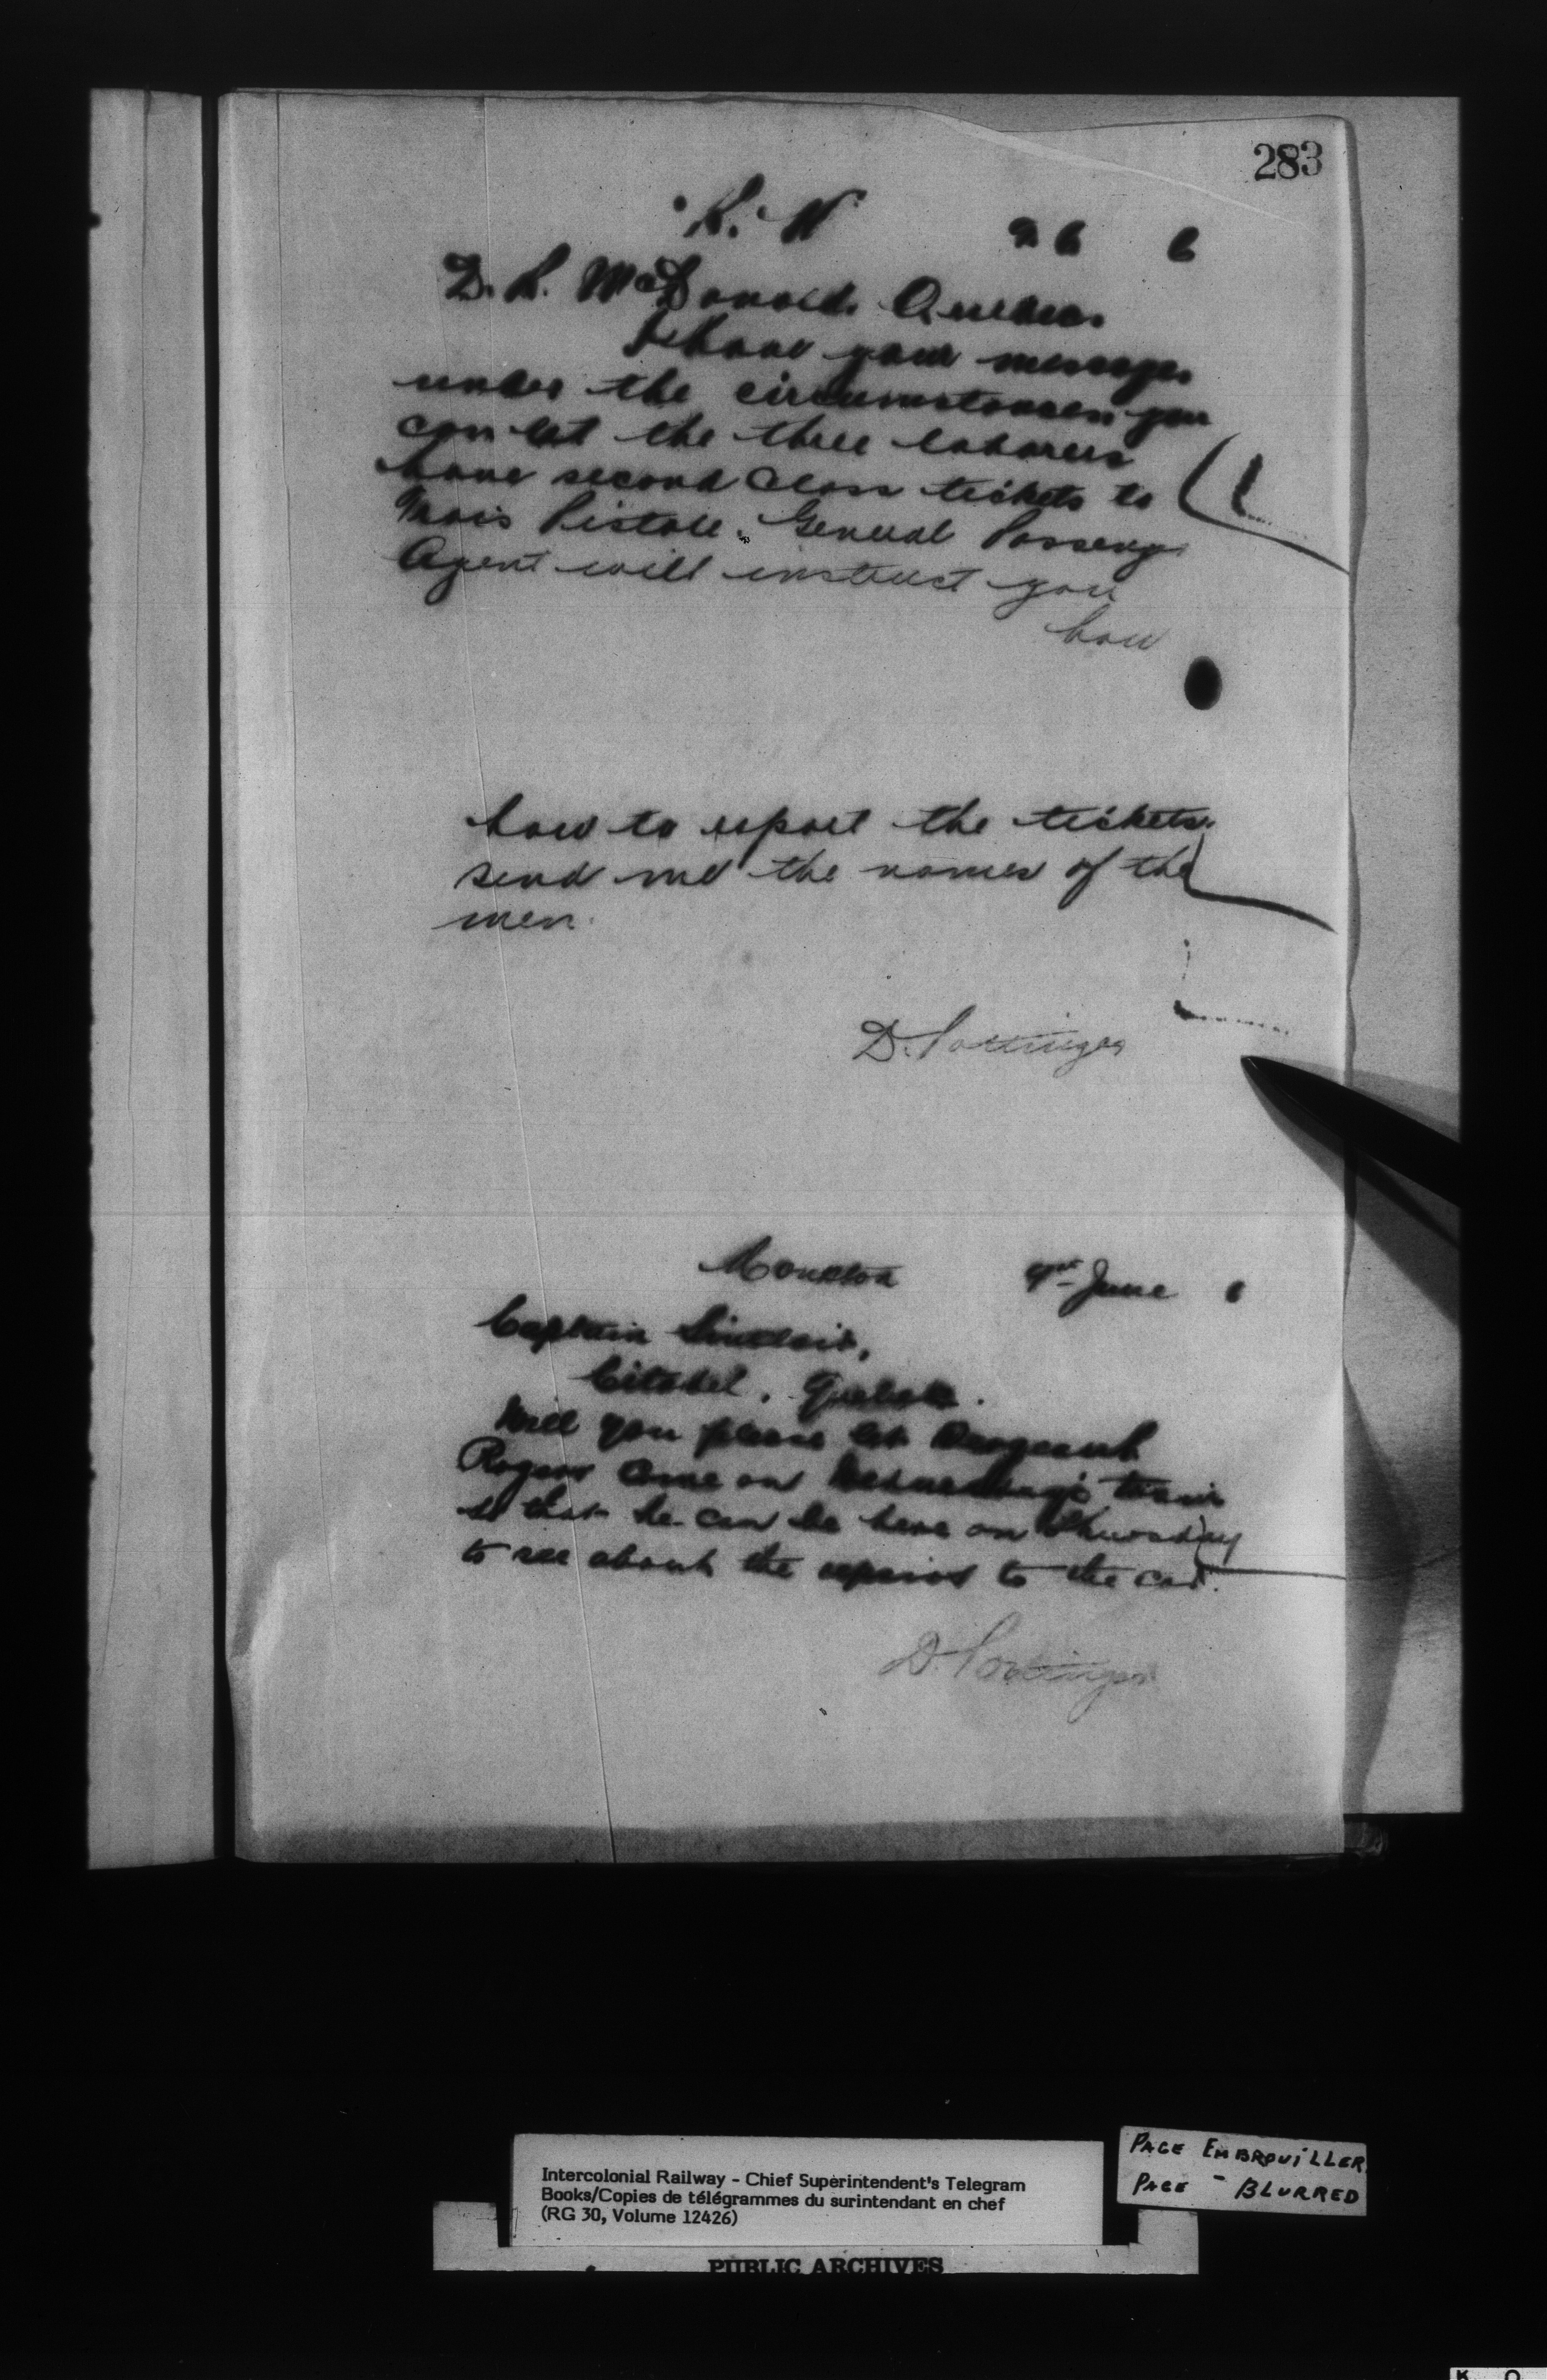 283
K. W 26 6
D. R. McDonald. Quebec.
I have your message.
under the circumstances you
can let the three laborers
have second class tickets to
Trois Pistole. General Passenger
Agent will instruct you
how
how to report the tickets.
send me the names of the
men.
D. Pottinger
Moncton June 6
Captain Sinclair,
Citadel. Quebec.
Will you please let Sergeant
Rogers come on train
so that he can be here on Thursday
to see about the repairs to the car.
D. Pottinger
Intercolonial Railway - Chief Superintendent's Telegram
Books/Copies de télégrammes du surintendant en chef
(RG 30, Volume 12426)
PAGE EMBROUILLER
PAGE - BLURRED
PUBLIC ARCHIVES